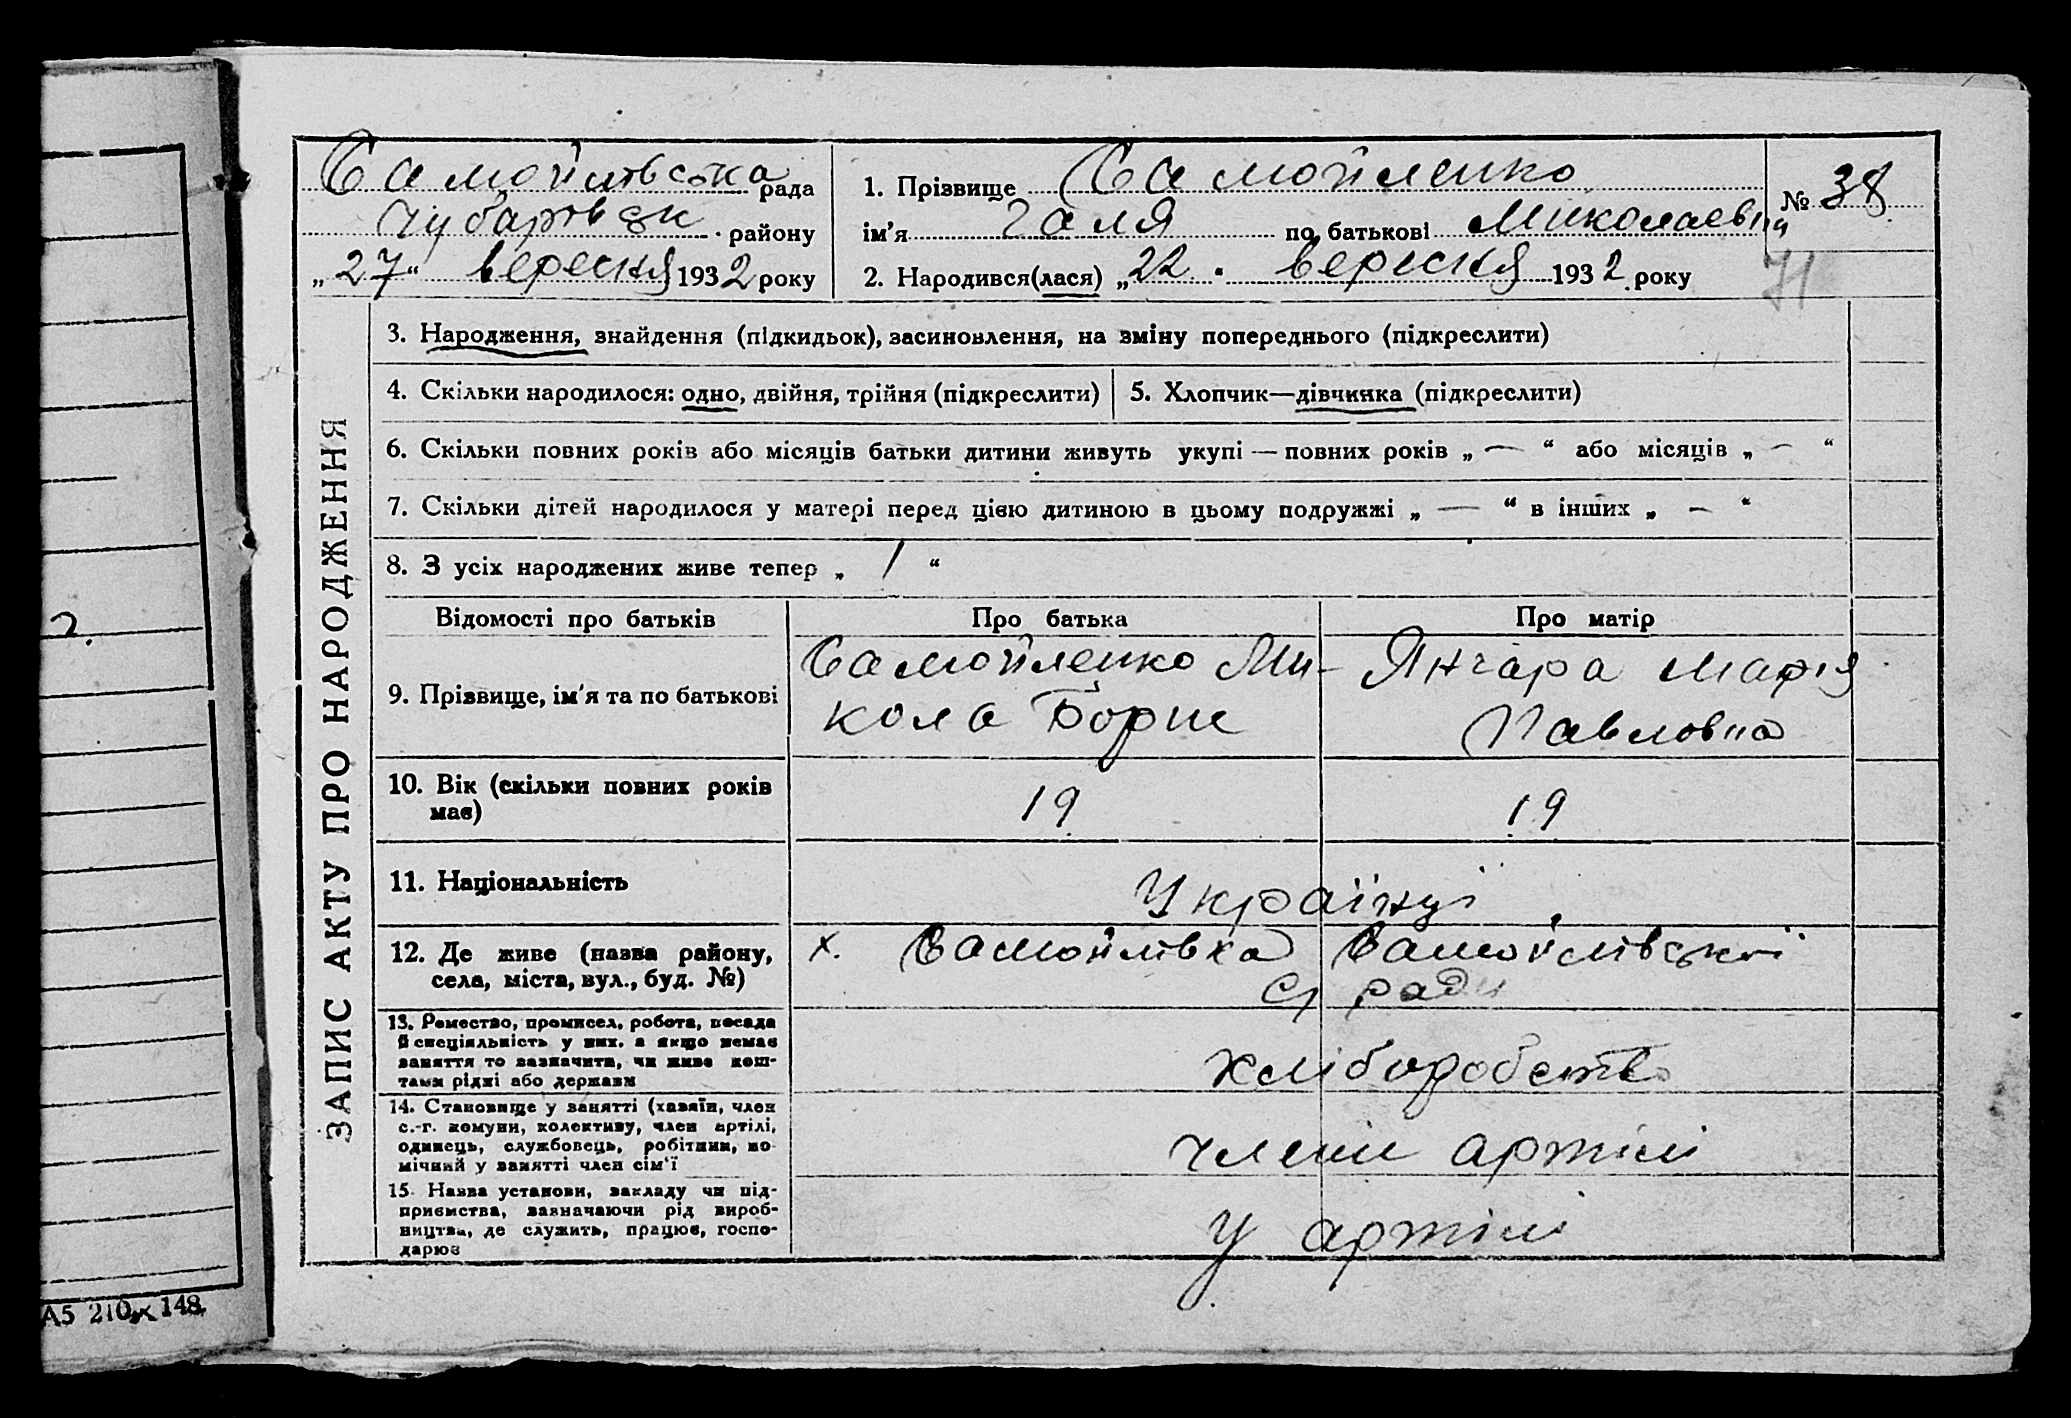 Самойлівська рада
Чубарівськ. району
„27“ вересня 1932 року
1. Прізвище Самойленко
№ 38
ім'я Галя по батькові Миколаевни
2. Народився(лася) „22. вересня 1932 року
71
ЗАПИС АКТУ ПРО НАРОДЖЕННЯ
3. Народження, знайдення (підкидьок), засиновлення, на зміну попереднього (підкреслити)
4. Скільки народилося: одно, двійня, трійня (підкреслити)
5. Хлопчик—дівчинка (підкреслити)
6. Скільки повних років або місяців батьки дитини живуть укупі — повних років „ — “ або місяців „ — “
7. Скільки дітей народилося у матері перед цією дитиною в цьому подружжі „ — “ в інших „ — “
8. З усіх народжених живе тепер „ 1 “
Відомості про батьків
Про батька
Про матір
9. Прізвище, ім'я та по батькові
Самойленко Ми-
кола Борис
Янчара Марія
Павловна
10. Вік (скільки повних років
має)
19
19
11. Національність
Українці
12. Де живе (назва району,
села, міста, вул., буд. №)
х. Самойлівка Самойлівської
с/ ради
13. Ремество, промисел, робота, посада
й спеціяльність у них, а якщо немає
заняття то зазначити, чи живе кош-
тами рідні або держави
хліборобство
14. Становище у занятті (хазяїн, член
с.-г. комуни, колективу, член артілі,
одинець, службовець, робітник, по-
мічний у занятті член сім'ї
члени артілі
15. Назва установи, закладу чи під-
приємства, зазначаючи рід вироб-
ництва, де служить, працює, госпо-
дарює
у артілі
2.
А5 210 × 148.